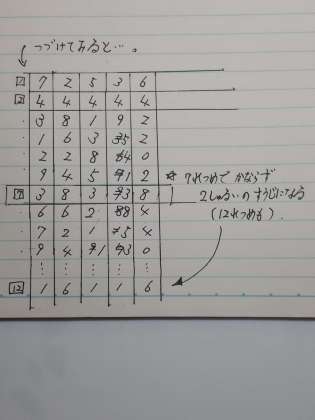 つづけてみると…。
1 7 2 5 3 6
2 4 4 4 4 4
・ 3 8 1 9 2
・ 1 6 3 5 2
・ 2 2 8 4 0
・ 9 4 5 1 2
☆ 7れつめで かならず
7 3 8 3 3 8
2しゅるいの すうじになる
・ 6 6 2 8 4
(12れつめも).
・ 7 2 1 5 4
・ 9 4 1 3 0
⋮ ⋮ ⋮ ⋮ ⋮
12 1 6 1 1 6